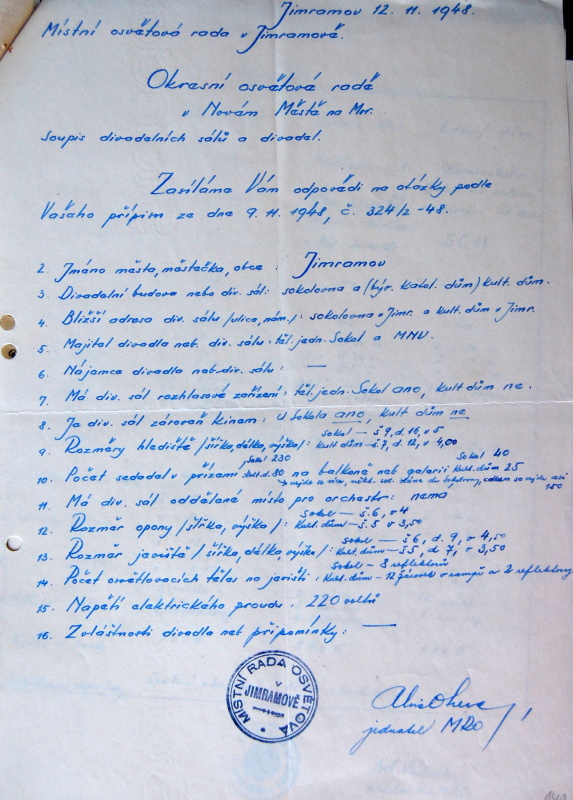 Jimramov 12. 11. 1948.
Místní osvětová rada v Jimramově.
Okresní osvětové radě
v Novém Městě na Mor.
Soupis divadelních sálů a divadel.
Zasíláme Vám odpovědi na otázky podle
Vašeho přípisu ze dne 9. 11. 1948, č. 324/2-48.
2. Jméno města, městečka, obce: Jimramov
3. Divadelní budova neb div. sál: sokolovna a (býv. katol. dům) kult. dům.
4. Bližší adresa div. sálu /ulice, nám./: sokolovna v Jimr. a kult. dům v Jimr.
5. Majitel divadla neb. div. sálu: těl. jedn. Sokol a MNV.
6. Nájemce divadla neb div. sálu: —
7. Má div. sál rozhlasové zařízení: těl. jedn. Sokol ano, kult dům ne.
8. Je div. sál zároveň kinem: U Sokola ano, kult dům ne
9. Rozměry hlediště /šířka, délka, výška/: Sokol — š 9, d. 16, v 5
Kult dům – š 7, d. 12, v 4,00
10. Počet sedadel v přízemí Sokol 230 Kult. d. 80 na balkoně neb galerii Sokol 40 Kult. dům 25
150
11. Má div. sál oddělené místo pro orchestr: nemá
12. Rozměr opony /šířka, výška/: Sokol — š 6, v 4
Kult. dům — š. 5 v 3,50
13. Rozměr jeviště /šířka, délka, výška/: Sokol — š 6, d. 9, v 4,50
Kult. dům — š 5, d 7, v 3,50
14. Počet osvětlovacích těles na jevišti: Sokol – 8 reflektorů
Kult. dům – 12 žárovek v rampě a 2 reflektory
15. Napětí elektrického proudu: 220 voltů
16. Zvláštnosti divadla neb připomínky: —
MÍSTNÍ RADA OSVĚTOVÁ
V
JIMRAMOVĚ
jednatel MRO